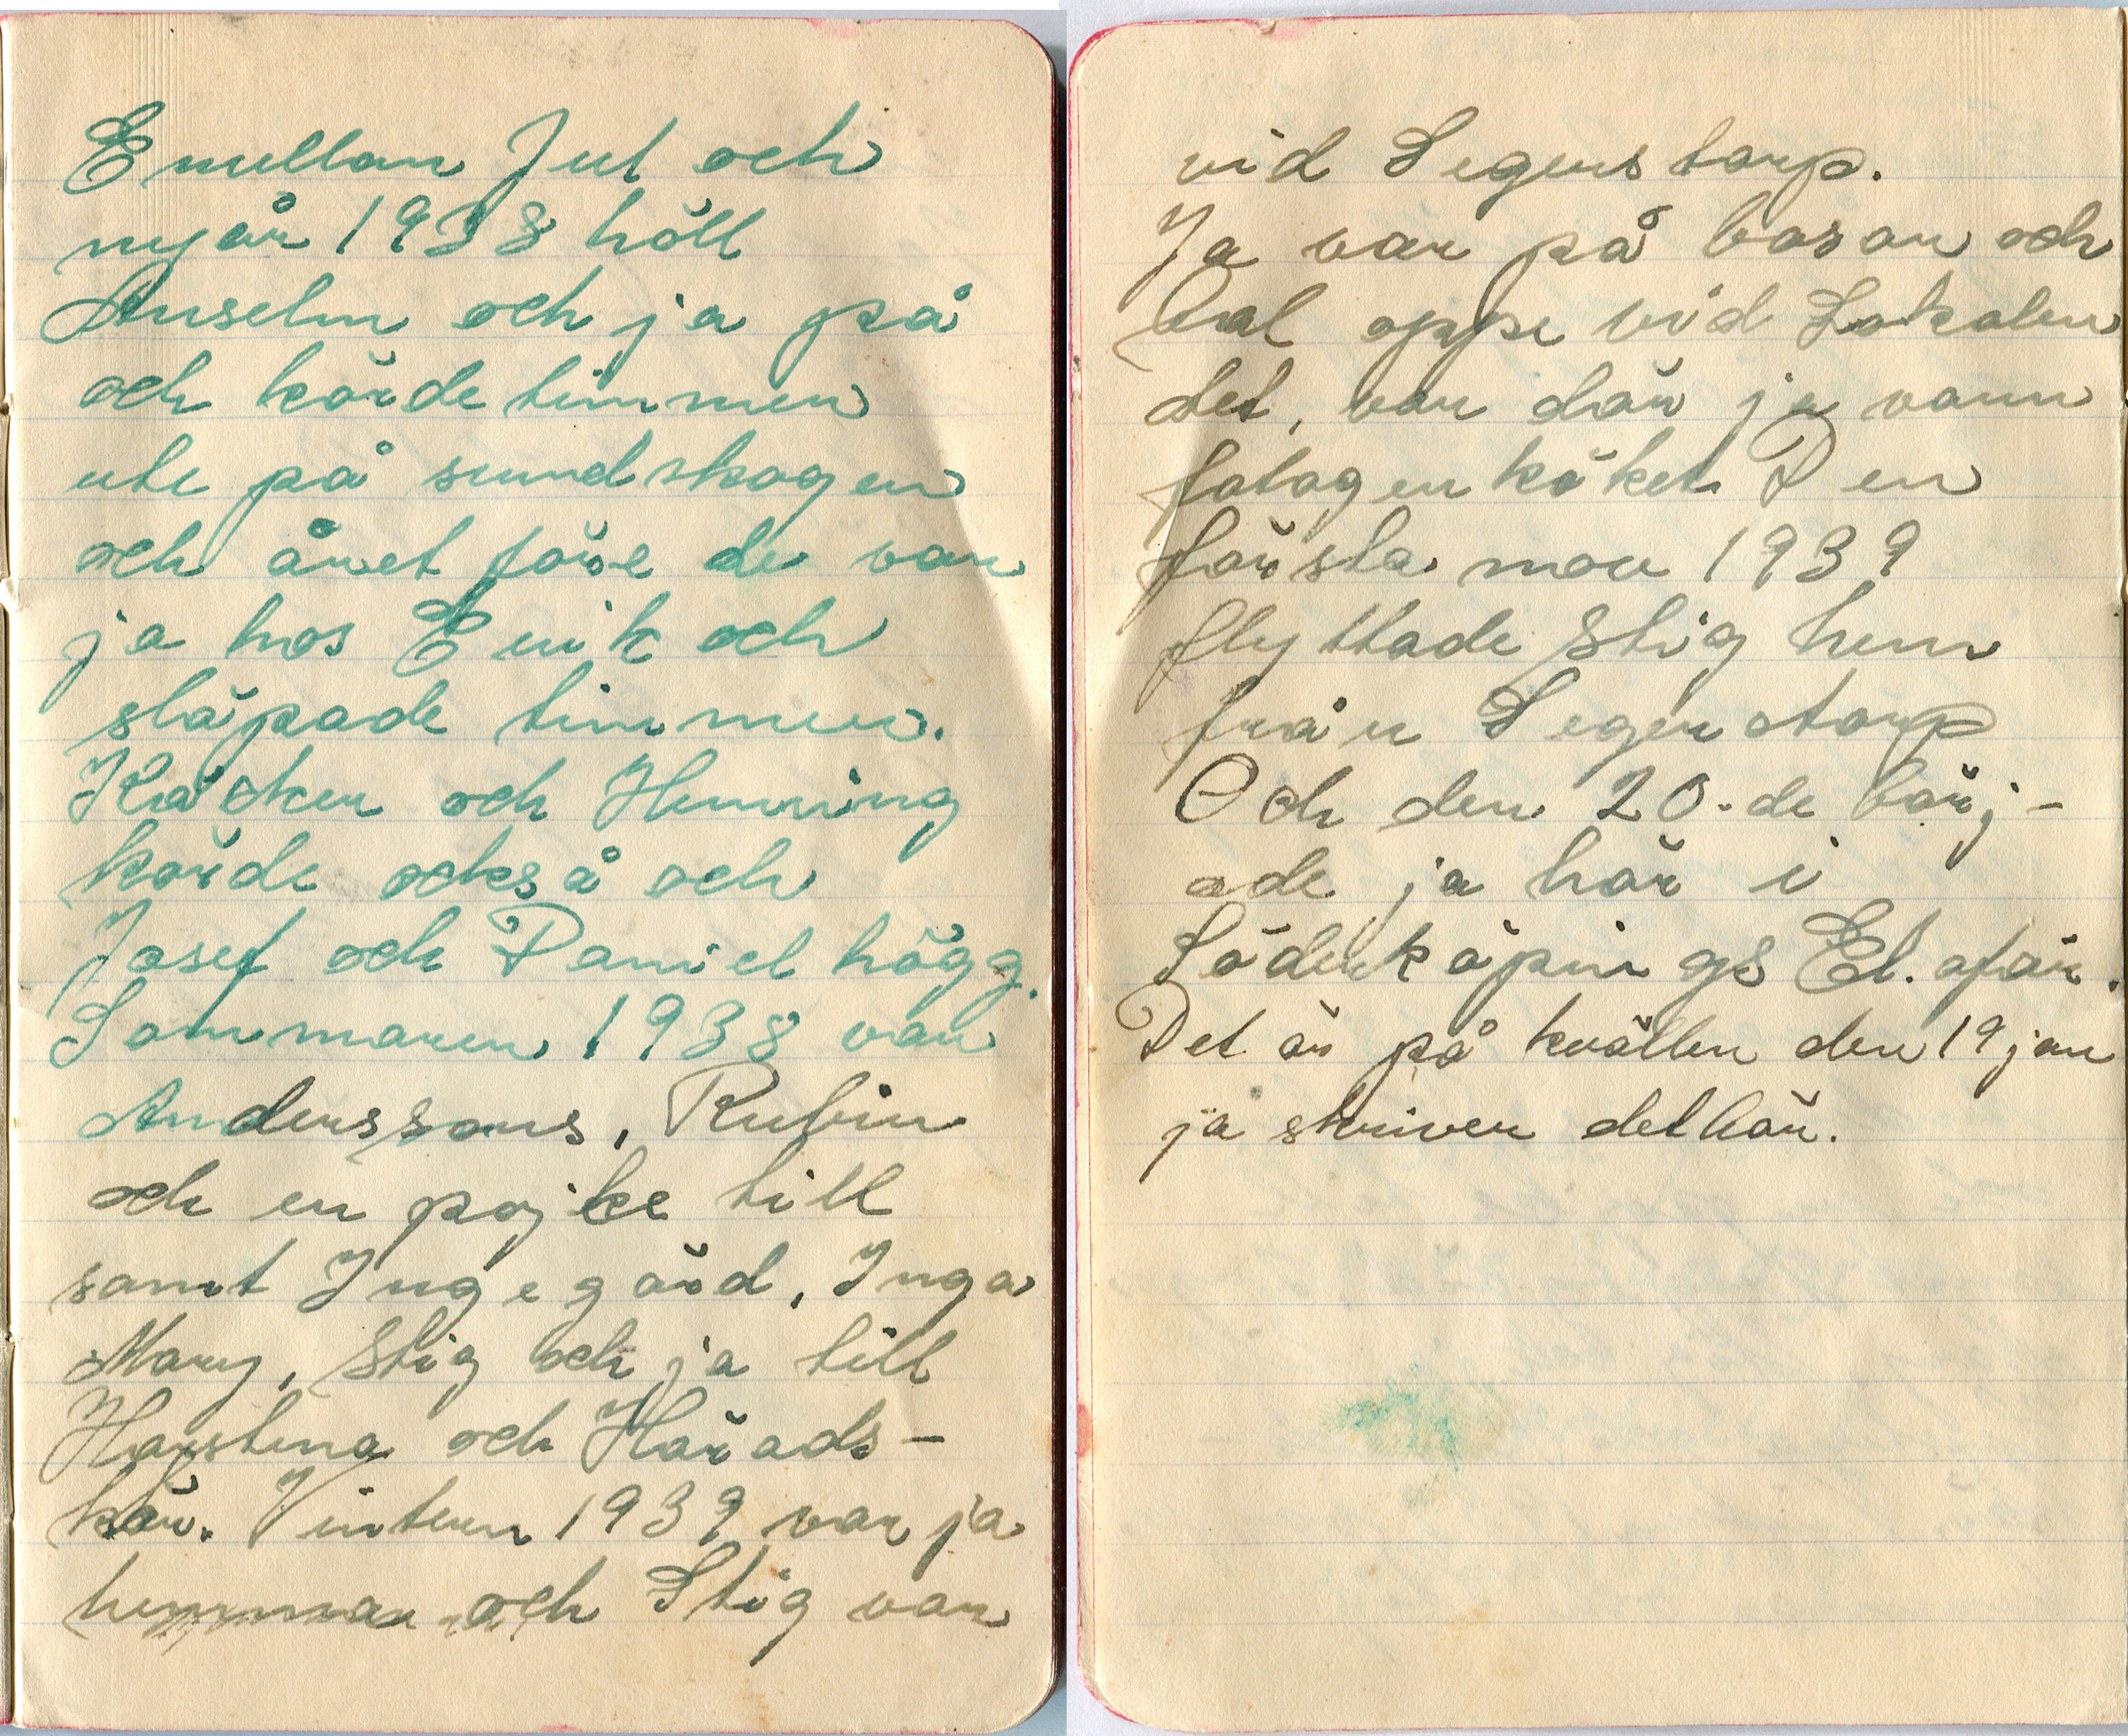 Emellan Jul och
nyår 1938 höll
Anselm och ja på
och körde timmer
ute på sundskogen
och året före de var
ja hos Erik och
släpade timmer.
och Henning
körde också och
Josef och Daniel högg.
Sommaren 1938 var
Anderssons, Rubin
och en pojke till
samt Ingegärd, Inga
Mary, Stig och ja till
Harstena och Härads-
kär. Vintern 1939 var ja
hemma och Stig var
vid Segerstorp.
Ja var på basar och
bal oppe vid Lokalen
det, var där ja vann
fotogenköket. Den
första mars 1939
flyttade Stig hem
från Segerstorp
Och den 20.de börj-
ade ja här i
Söderköpings El. afär.
Det är på kvällen den 19 jan
ja skriver det här.